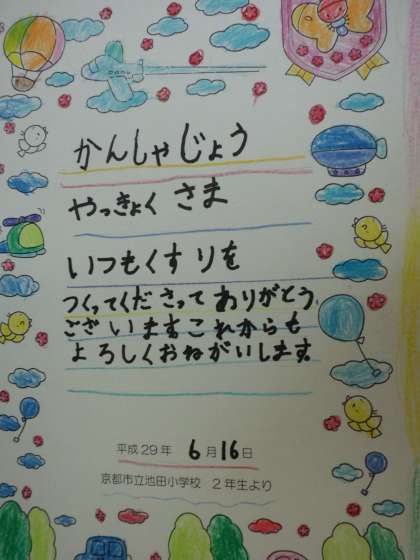 かんしゃじょう
やっきょく さま
いつもくすりを
つくってくださって ありがとう
ございます。これからも
よろしくおねがいします
平成29年 6月16日
京都市立池田小学校 2年生より